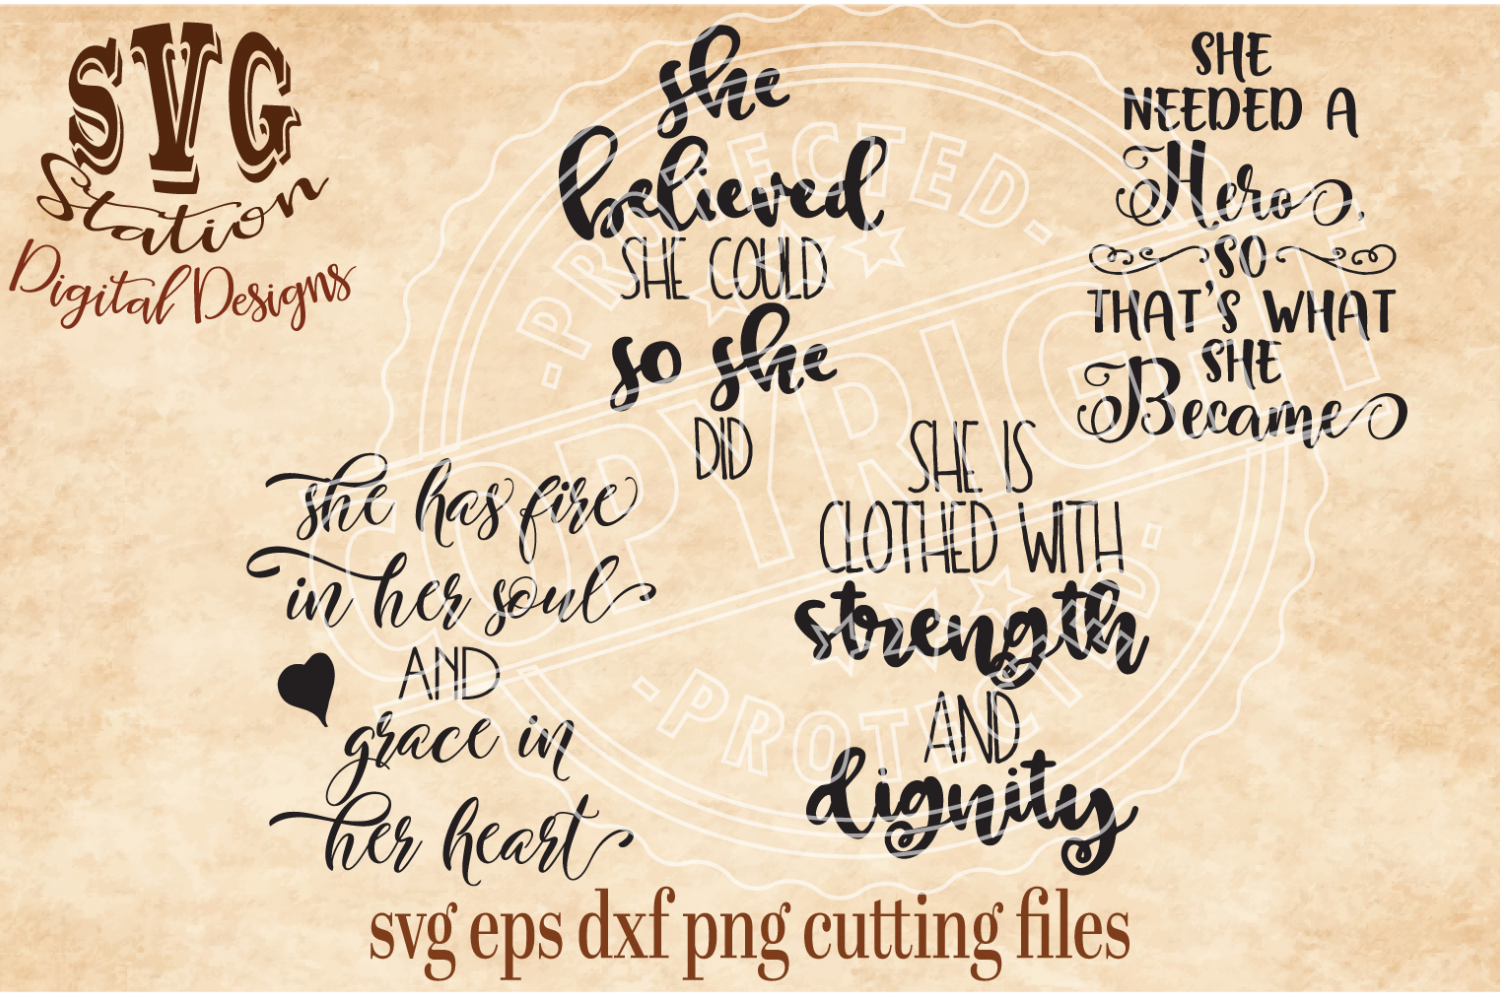 SVG
Station
Digital Designs
she
believed
SHE COULD
so she
DID
SHE
NEEDED A
Hero,
SO
THAT'S WHAT
SHE
Became
she has fire
in her soul
AND
grace in
her heart
SHE IS
CLOTHED WITH
strength
AND
dignity
PROTECTED
COPYRIGHT
PROTECTED
svg eps dxf png cutting files